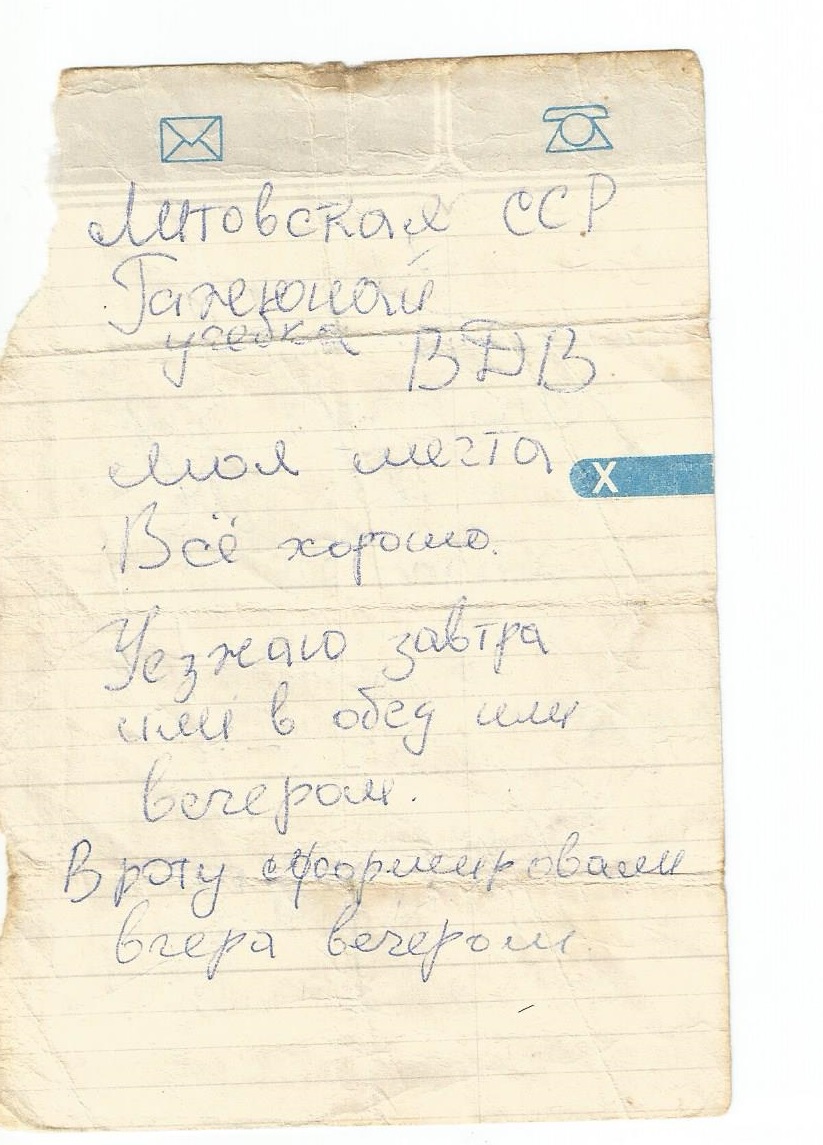 Литовская ССР
Гайжюнай
учебка ВДВ
Моя мечта
Х
Всё хорошо.
Уезжаю завтра
или в обед или
вечером.
В роту сформировали
вчера вечером